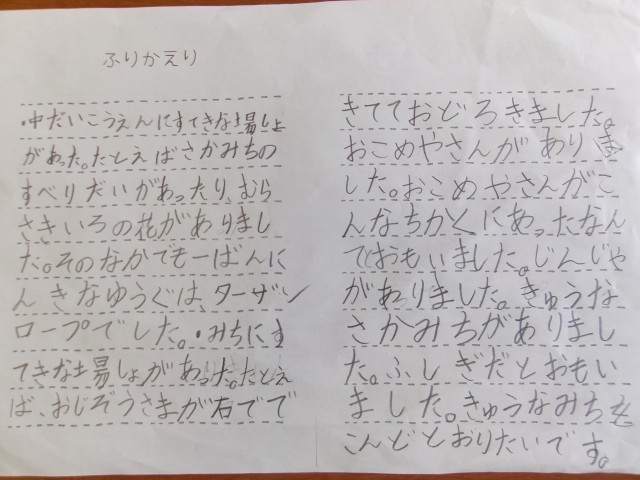 ふりかえり
・中だいこうえんにすてきな場しょ
があった。たとえばさかみちの
すべりだいがあったり、むら
さきいろの花がありまし
た。そのなかでも一ばんに
んきなゆうぐは、ターザン
ロープでした。・みちにす
てきな場しょがあった。たとえ
ば、おじぞうさまが右でで
きてておどろきました。
おこめやさんがあり
した。おこめやさんがこ
んなちかくにあったなん
ておもいました。じんじゃ
がありました。きゅうな
さかみちがありまし
た。ふしぎだとおもい
ました。きゅうなみちを
こんどとおりたいです。